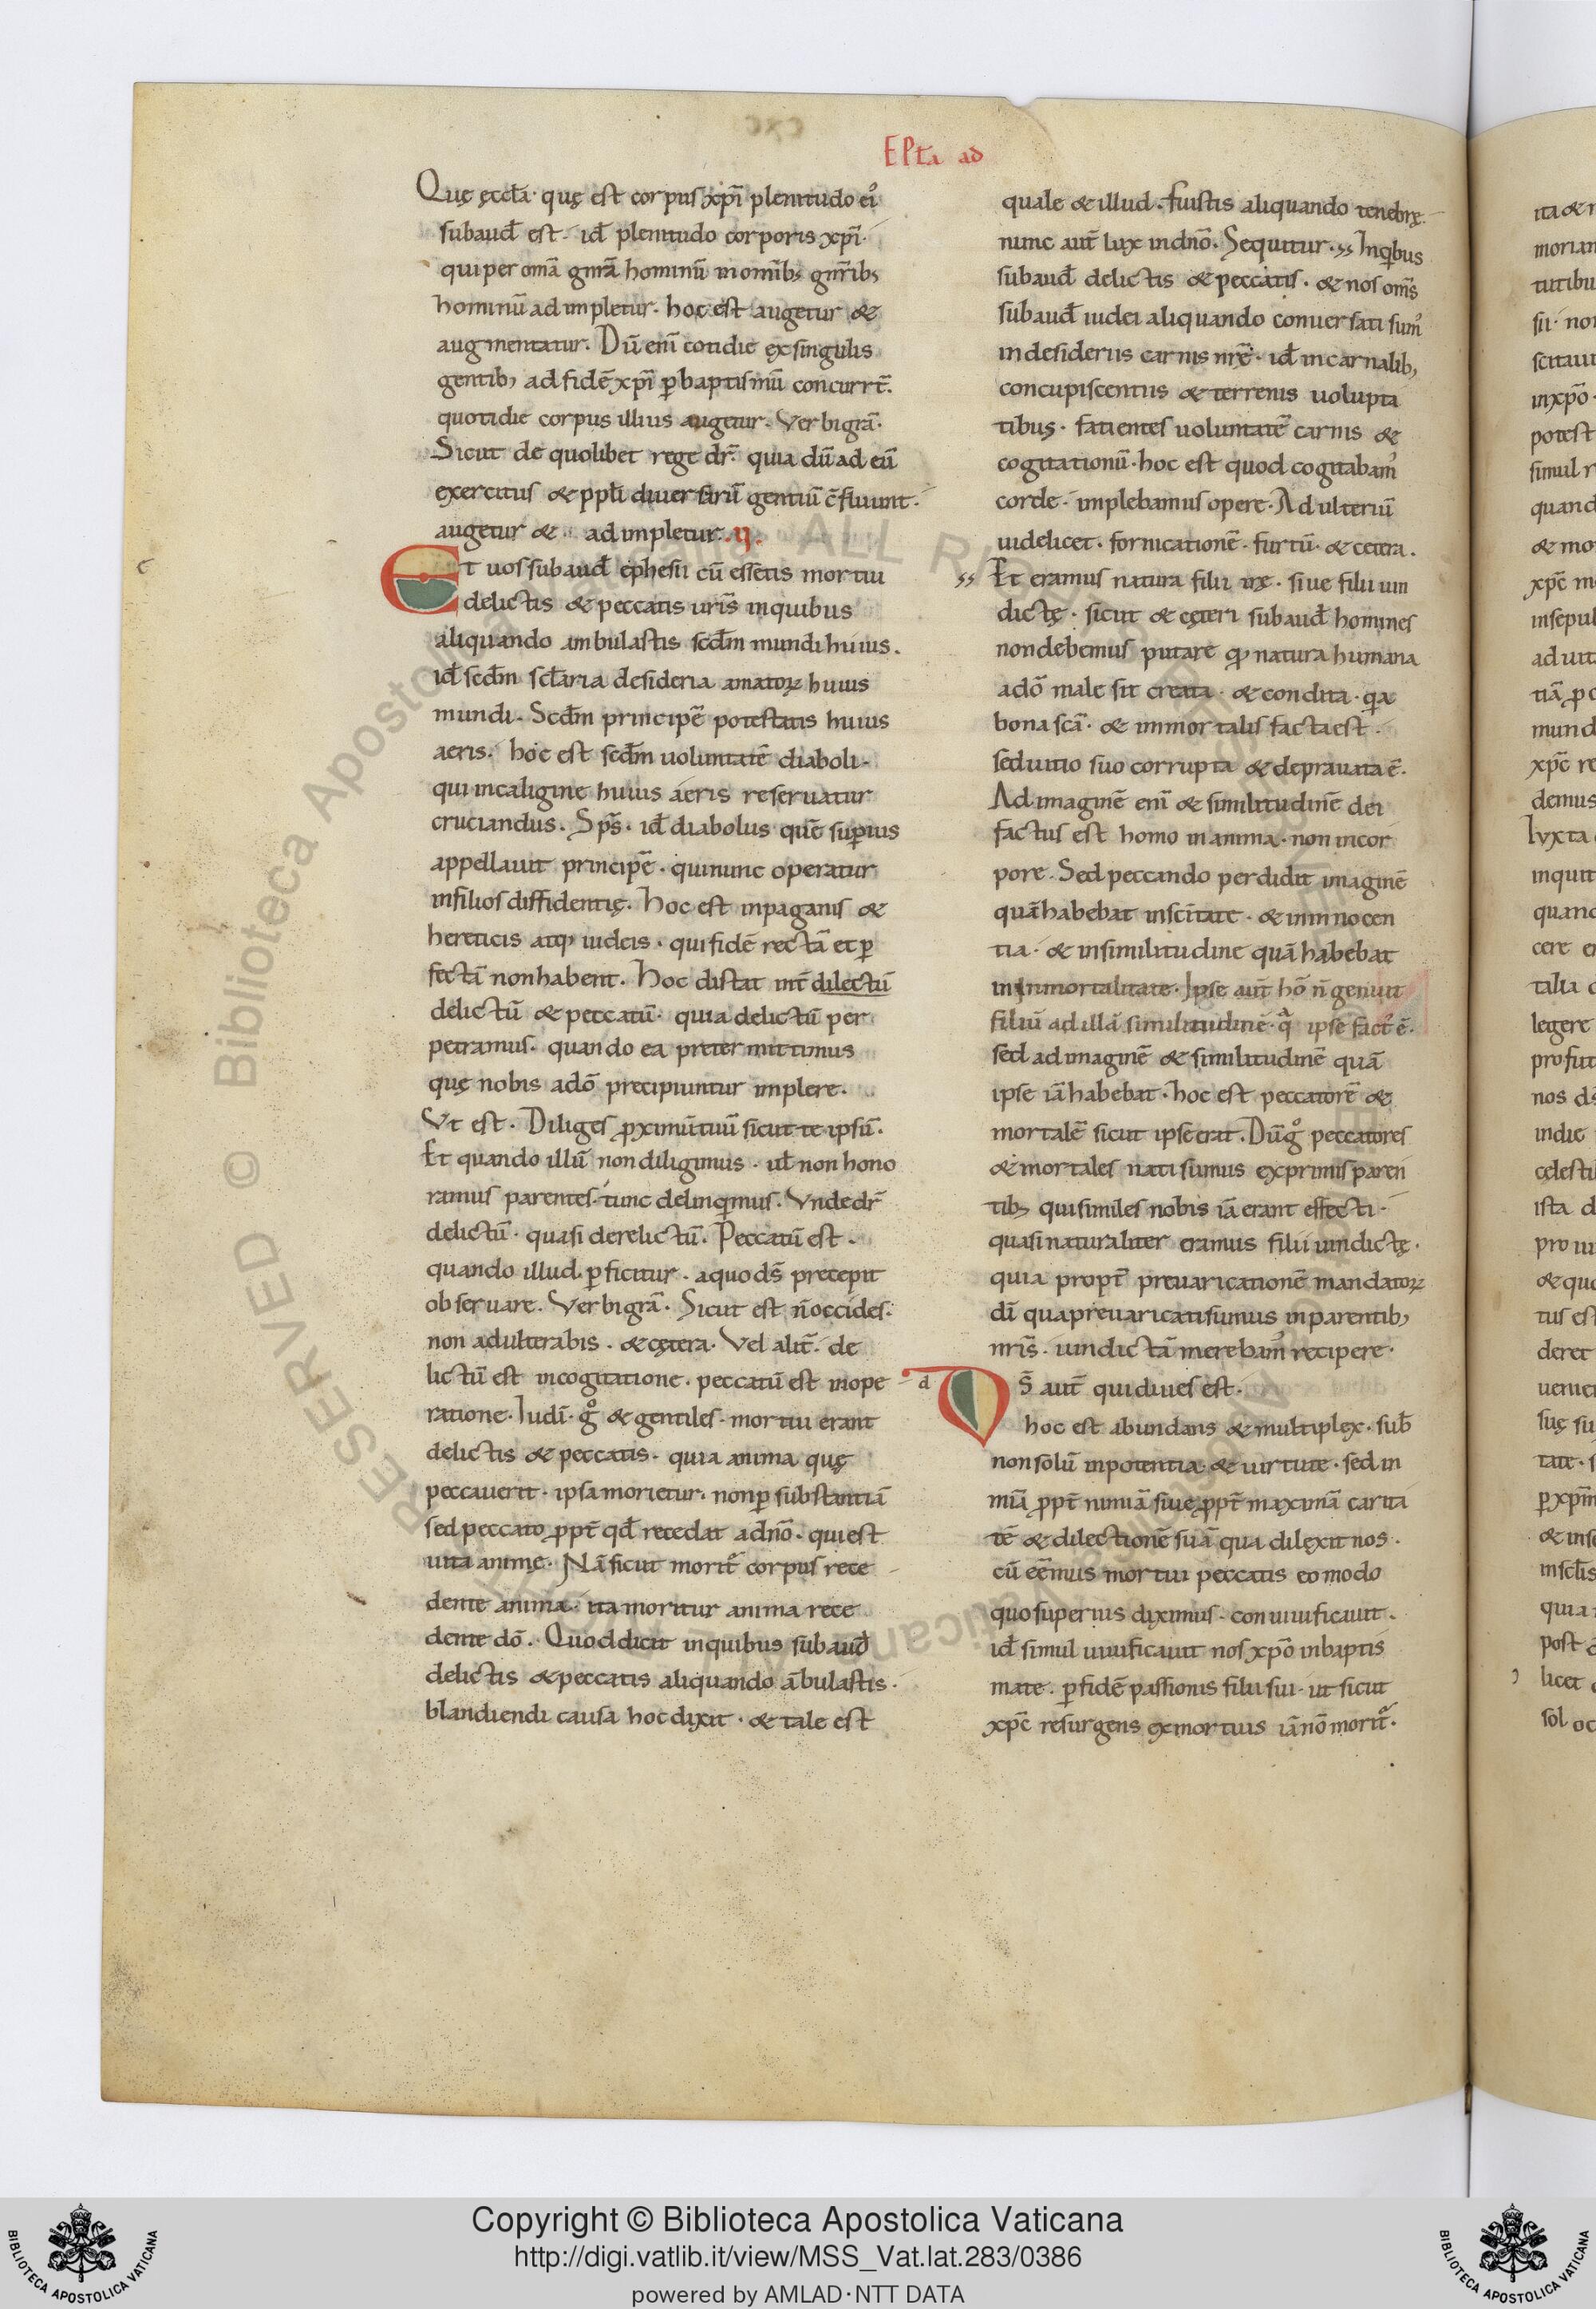 EPƚa ad
Quę ęccƚa· quę est corpus xp̄i plenitudo ei᾽
subaud̄ est· id̄ plenitudo corporis xp̄i·
qui per om̄a gn̄ra hominū in om̄ib; gn̄rib;
hominū adimpletur· hoc est augetur &
augmentatur. Dū eni᷑ cotidie ex singulis
gentib; ad fidē xp̄i ꝑ baptismū concurrt̄.
quotidie corpus illius augetur. Verbi grā·
Sicut de quolibet rege dr̄· quia dū ad eū
exercitus & ppl̄i diuersarū gentiū c̄fluunt·
augetur & adimpletur. .ıı.
Et uos subaud̄ ephesii cū essetis mortui
delictis & peccatis uris̄ in quibus
aliquando ambulastis scd̄m mundi huius.
id̄ scd̄m scƚaria desideria amatoꝝ huius
mundi. Scd̄m principē potestatis huius
aeris. hoc est scd̄m uoluntatē diaboli·
qui in caligine huius aeris reseruatur
cruciandus. Sps̄· id̄ diabolus quē superius
appellauit principē· qui nunc operatur
in filios diffidentię. Hoc est in paganis &
hereticis atq; iudeis· qui fidē rectā et ꝑ
fectā non habent. Hoc distat int̄ dilectū
delictū & peccatū· quia delictū per
petramus· quando ea pretermittimus
quę nobis a dō precipiuntur implere.
Vt est. Diliges ꝓximū tuū sicut te ipsū.
Et quando illū non diligimus· uƚ non hono
ramus parentes· tunc delinqimus. Vnde dr̄
delictū· quasi derelictū. Peccatū est·
quando illud ꝑficitur· a quo ds̄ precepit
obseruare. Verbi grā. Sicut est n̄ occides·
non adulterabis· & cętera. Vel alit̄· de
lictū est in cogitatione· peccatū est in ope
ratione. Iudi᷑ gͦ & gentiles mortui erant
delictis & peccatis· quia anima quę
peccauerit· ipsa morietur· non ꝑ substantiā
sed peccato ꝓpt̄ qd̄ recedat a dn̄o· qui est
uita animę. Nā sicut morit᷑ corpus rece
dente anima· ita moritur anima rece
dente dō. Quod dicit in quibus subaud̄
delictis & peccatis aliquando ābulastis·
blandiendi causa hoc dixit· & tale est
quale & illud· Fuistis aliquando tenebrę·
nunc aut̄ lux in dn̄o. Sequitur· In qibus
subaud̄ delictis & peccatis· & nos om̄s
subaud̄ iudei aliquando conuersati sum᾽
in desideriis carnis nr̄ę· id̄ in carnalib;
concupiscentiis & terrenis uolupta
tibus· fatientes uoluntatē carnis &
cogitationū· hoc est quod cogitabam᾽
corde· implebamus opere. Adulteriū
uidelicet· fornicationē· furtū· & cetera.
Et eramus natura filii irę· siue filii uin
dictę· sicut & cęteri subaud̄ homines
non debemus putare qd̄ natura humana
a dō male sit creata· & condita· qia
bona scā· & immortalis facta est·
sed uitio suo corrupta & deprauata ē.
Ad imaginē eni᷑ & similitudinē dei
factus est homo in anima· non in cor
pore. Sed peccando perdidit imaginē
quā habebat in scitate· & in innocen
tia· & in similitudine quā habebat
in inmortalitate. Ipse aut̄ hō n̄ genuit
filiū ad illā similitudinē· q̄ ipse fact᾽ ē.
sed ad imaginē & similitudinē quā
ipse iā habebat· hoc est peccatorē &
mortalē sicut ipse erat. Dū gͦ peccatores
& mortales nati sumus ex primis paren
tib; qui similes nobis iā erant effecti·
quasi naturaliter eramus filii uindictę·
quia propt̄ preuaricationē mandatoꝝ
dī qua preuaricati sumus in parentib;
nr̄is· uindictā merebam᾽ recipere·
d
Ds̄ aut̄ qui diues est·
hoc est abundans & multiplex· sub̄
non solū in potentia & uirtute· sed in
mīa ꝓpt̄ nimiā siue ꝓpt̄ maximā carita
tē & dilectionē suā qua dilexit nos·
cū eēmus mortui peccatis eo modo
quo superius diximus· conuiuificauit·
id̄ simul uiuificauit nos xpō in baptis
mate· ꝑ fidē passionis filii sui· ut sicut
xpc̄ resurgens ex mortuis iā nō morit᷑.
Copyright © Biblioteca Apostolica Vaticana
http://digi.vatlib.it/view/MSS_Vat.lat.283/0386
powered by AMLAD·NTT DATA
BIBLIOTECA APOSTOLICA VATICANA
BIBLIOTECA APOSTOLICA VATICANA